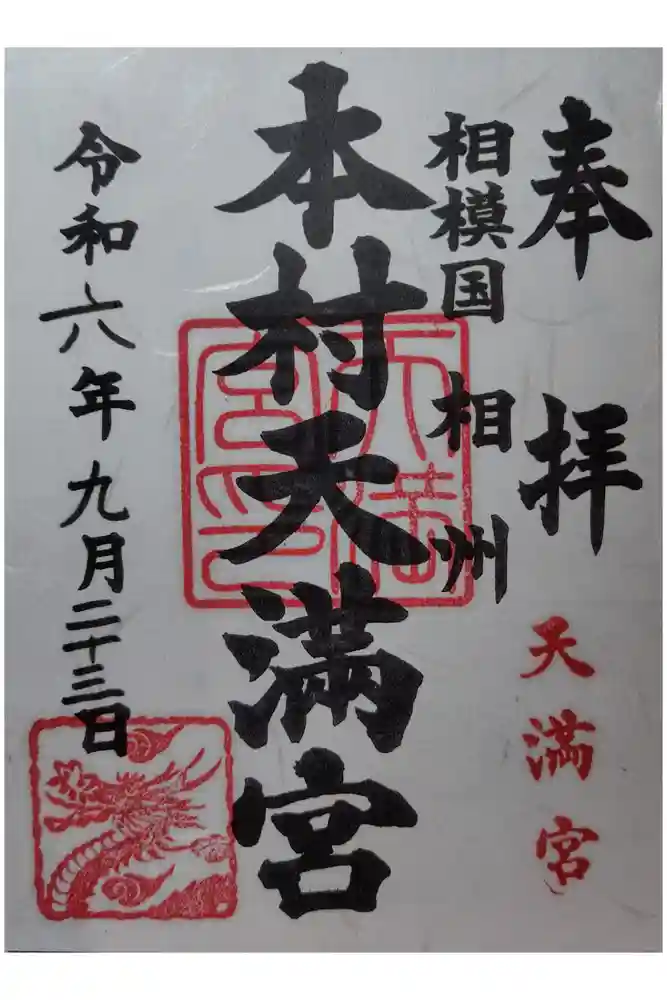 奉拝
天満宮
相模国
相州
本村天満宮
天満宮印
令和六年九月二十三日